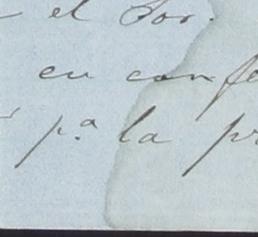 el Sor.
en con
p.ª la